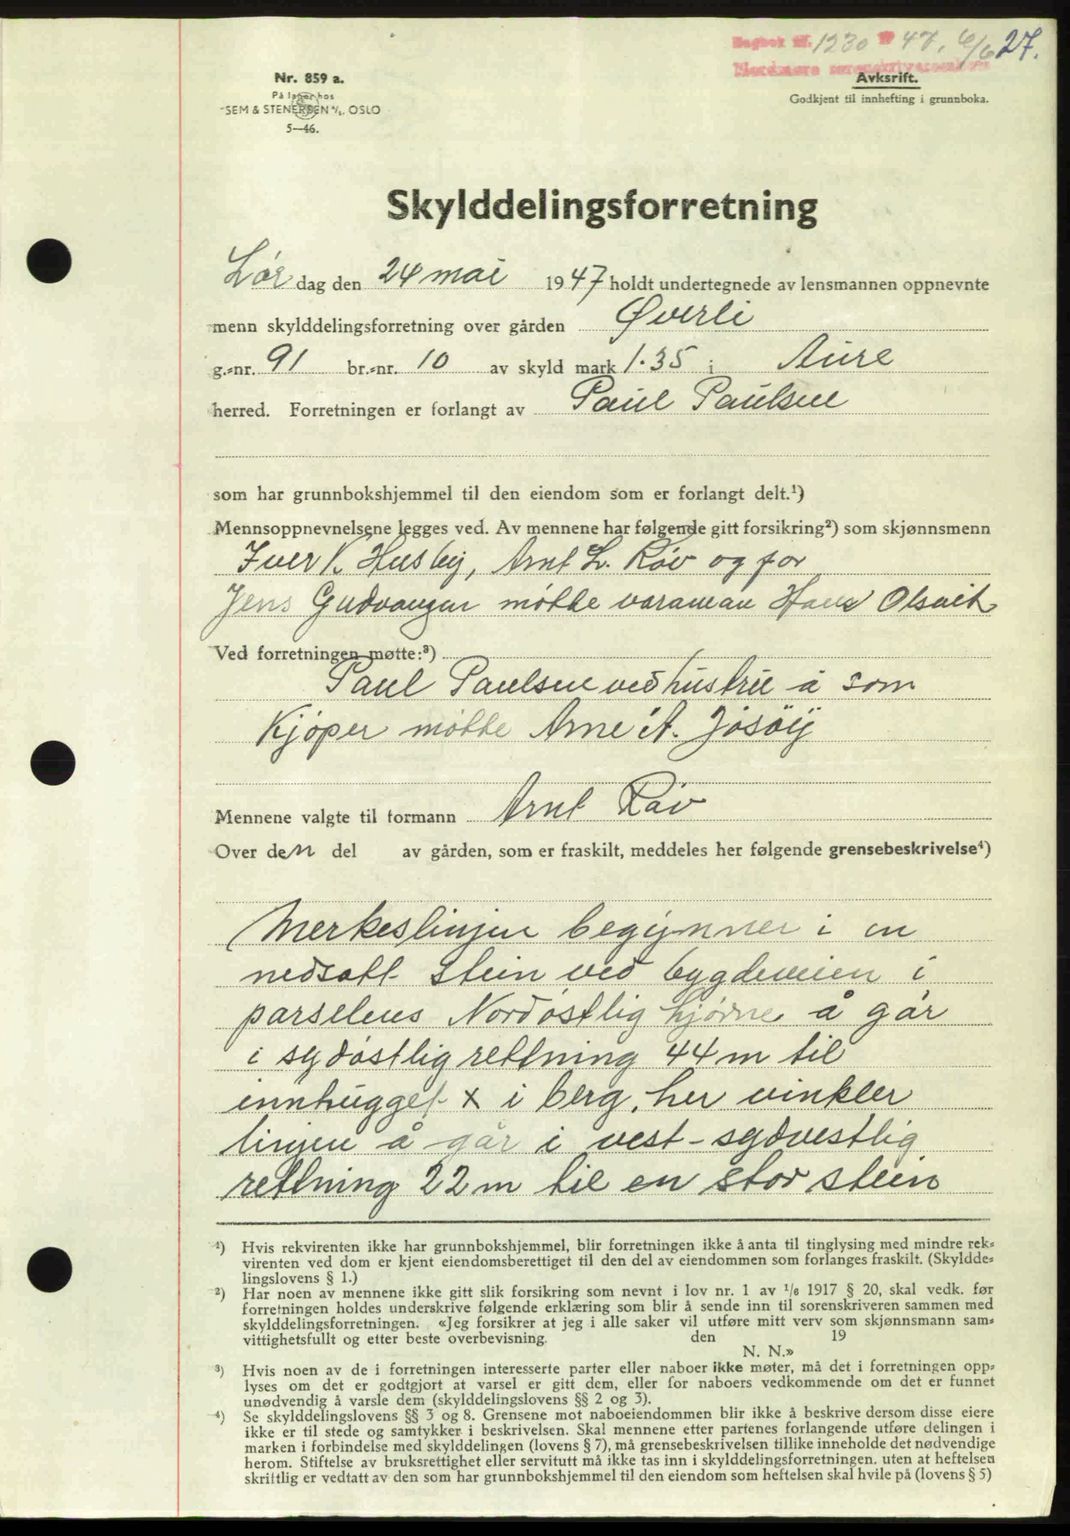 Dagbok nr. 1230 19 47, 6/6 27.
Nordmøre sorenskriverembede
Nr. 859 a.
På lager hos
SEM & STENERSEN A/S, OSLO
5—46.
Avksrift.
Godkjent til innhefting i grunnboka.
Skylddelingsforretning
Lør dag den 24 mai 1947 holdt undertegnede av lensmannen oppnevnte
menn skylddelingsforretning over gården Øverli
g.-nr. 91 br.-nr. 10 av skyld mark 1.35 i Aure
herred. Forretningen er forlangt av Paul Paulsen
som har grunnbokshjemmel til den eiendom som er forlangt delt.¹)
Mennsoppnevnelsene legges ved. Av mennene har følgende gitt forsikring²) som skjønnsmenn
Iver K. Husby, Arnt L. Røv og for
Jens Gudvangen møtte varaman Hans Olsvik
Ved forretningen møtte:³)
Paul Paulsen ved hustru å som
Kjøper møtte Arne A. Jøsøy
Mennene valgte til formann Arnt Røv
Over den del av gården, som er fraskilt, meddeles her følgende grensebeskrivelse⁴)
Merkeslinjen begynner i en
nedsatt stein ved bygdeveien i
parselens Nordøstlig hjørne å går
i sydøstlig rettning 44 m til
innhugget x i berg, her vinkler
linjen å går i vest-sydvestlig
rettning 22 m til en stor stein
¹) Hvis rekvirenten ikke har grunnbokshjemmel, blir forretningen ikke å anta til tinglysing med mindre rek-
virenten ved dom er kjent eiendomsberettiget til den del av eiendommen som forlanges fraskilt. (Skyldde-
lingslovens § 1.)
²) Har noen av mennene ikke gitt slik forsikring som nevnt i lov nr. 1 av 1/6 1917 § 20, skal vedk. før
forretningen holdes underskrive følgende erklæring som blir å sende inn til sorenskriveren sammen med
skylddelingsforretningen. «Jeg forsikrer at jeg i alle saker vil utføre mitt verv som skjønnsmann sam-
vittighetsfullt og etter beste overbevisning. den 19
N. N.»
³) Hvis noen av de i forretningen interesserte parter eller naboer ikke møter, må det i forretningen opp-
lyses om det er godtgjort at varsel er gitt dem, eller for naboers vedkommende om det er funnet
unødvendig å varsle dem (skylddelingslovens §§ 2 og 3).
⁴) Se skylddelingslovens §§ 3 og 8. Grensene mot naboeiendommen blir ikke å beskrive dersom disse eiere
ikke er til stede og samtykker i beskrivelsen. Skal mennene etter partenes forlangende utføre delingen i
marken i forbindelse med skylddelingen (lovens § 7), må grensebeskrivelsen tillike inneholde det nødvendige
herom. Stiftelse av bruksrettighet eller servitutt må ikke tas inn i skylddelingsforretningen. uten at heftelsen
skriftlig er vedtatt av den som har grunnbokshjemmel til den eiendom som heftelsen skal hvile på (lovens § 5)